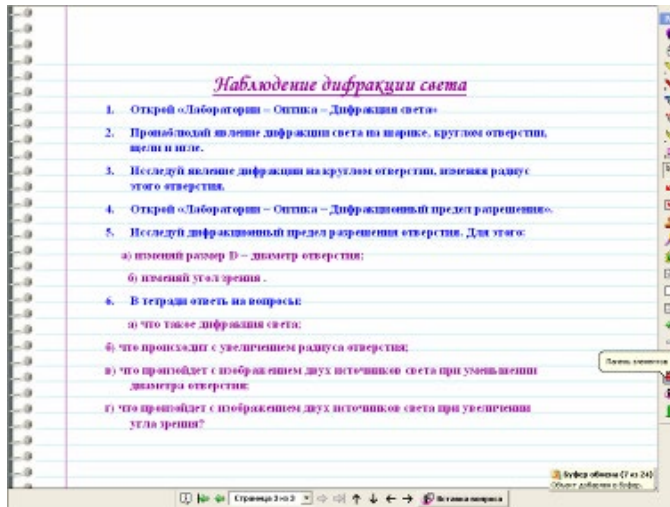 Наблюдение дифракции света
1. Открой «Лаборатории – Оптика – Дифракция света»
2. Пронаблюдай явление дифракции света на шарике, круглом отверстии,
щели и игле.
3. Исследуй явление дифракции на круглом отверстии, изменяя радиус
этого отверстия.
4. Открой «Лаборатории – Оптика – Дифракционный предел разрешения».
5. Исследуй дифракционный предел разрешения отверстия. Для этого:
а) изменяй размер D – диаметр отверстия;
б) изменяй угол зрения .
6. В тетради ответь на вопросы:
а) что такое дифракция света;
б) что происходит с увеличением радиуса отверстия;
в) что произойдет с изображением двух источников света при уменьшении
диаметра отверстия;
г) что произойдет с изображением двух источников света при увеличении
угла зрения?
Панель элементов
Буфер обмена (7 из 24)
Объект добавлен в буфер.
Страница 3 из 3
Вставка вопроса